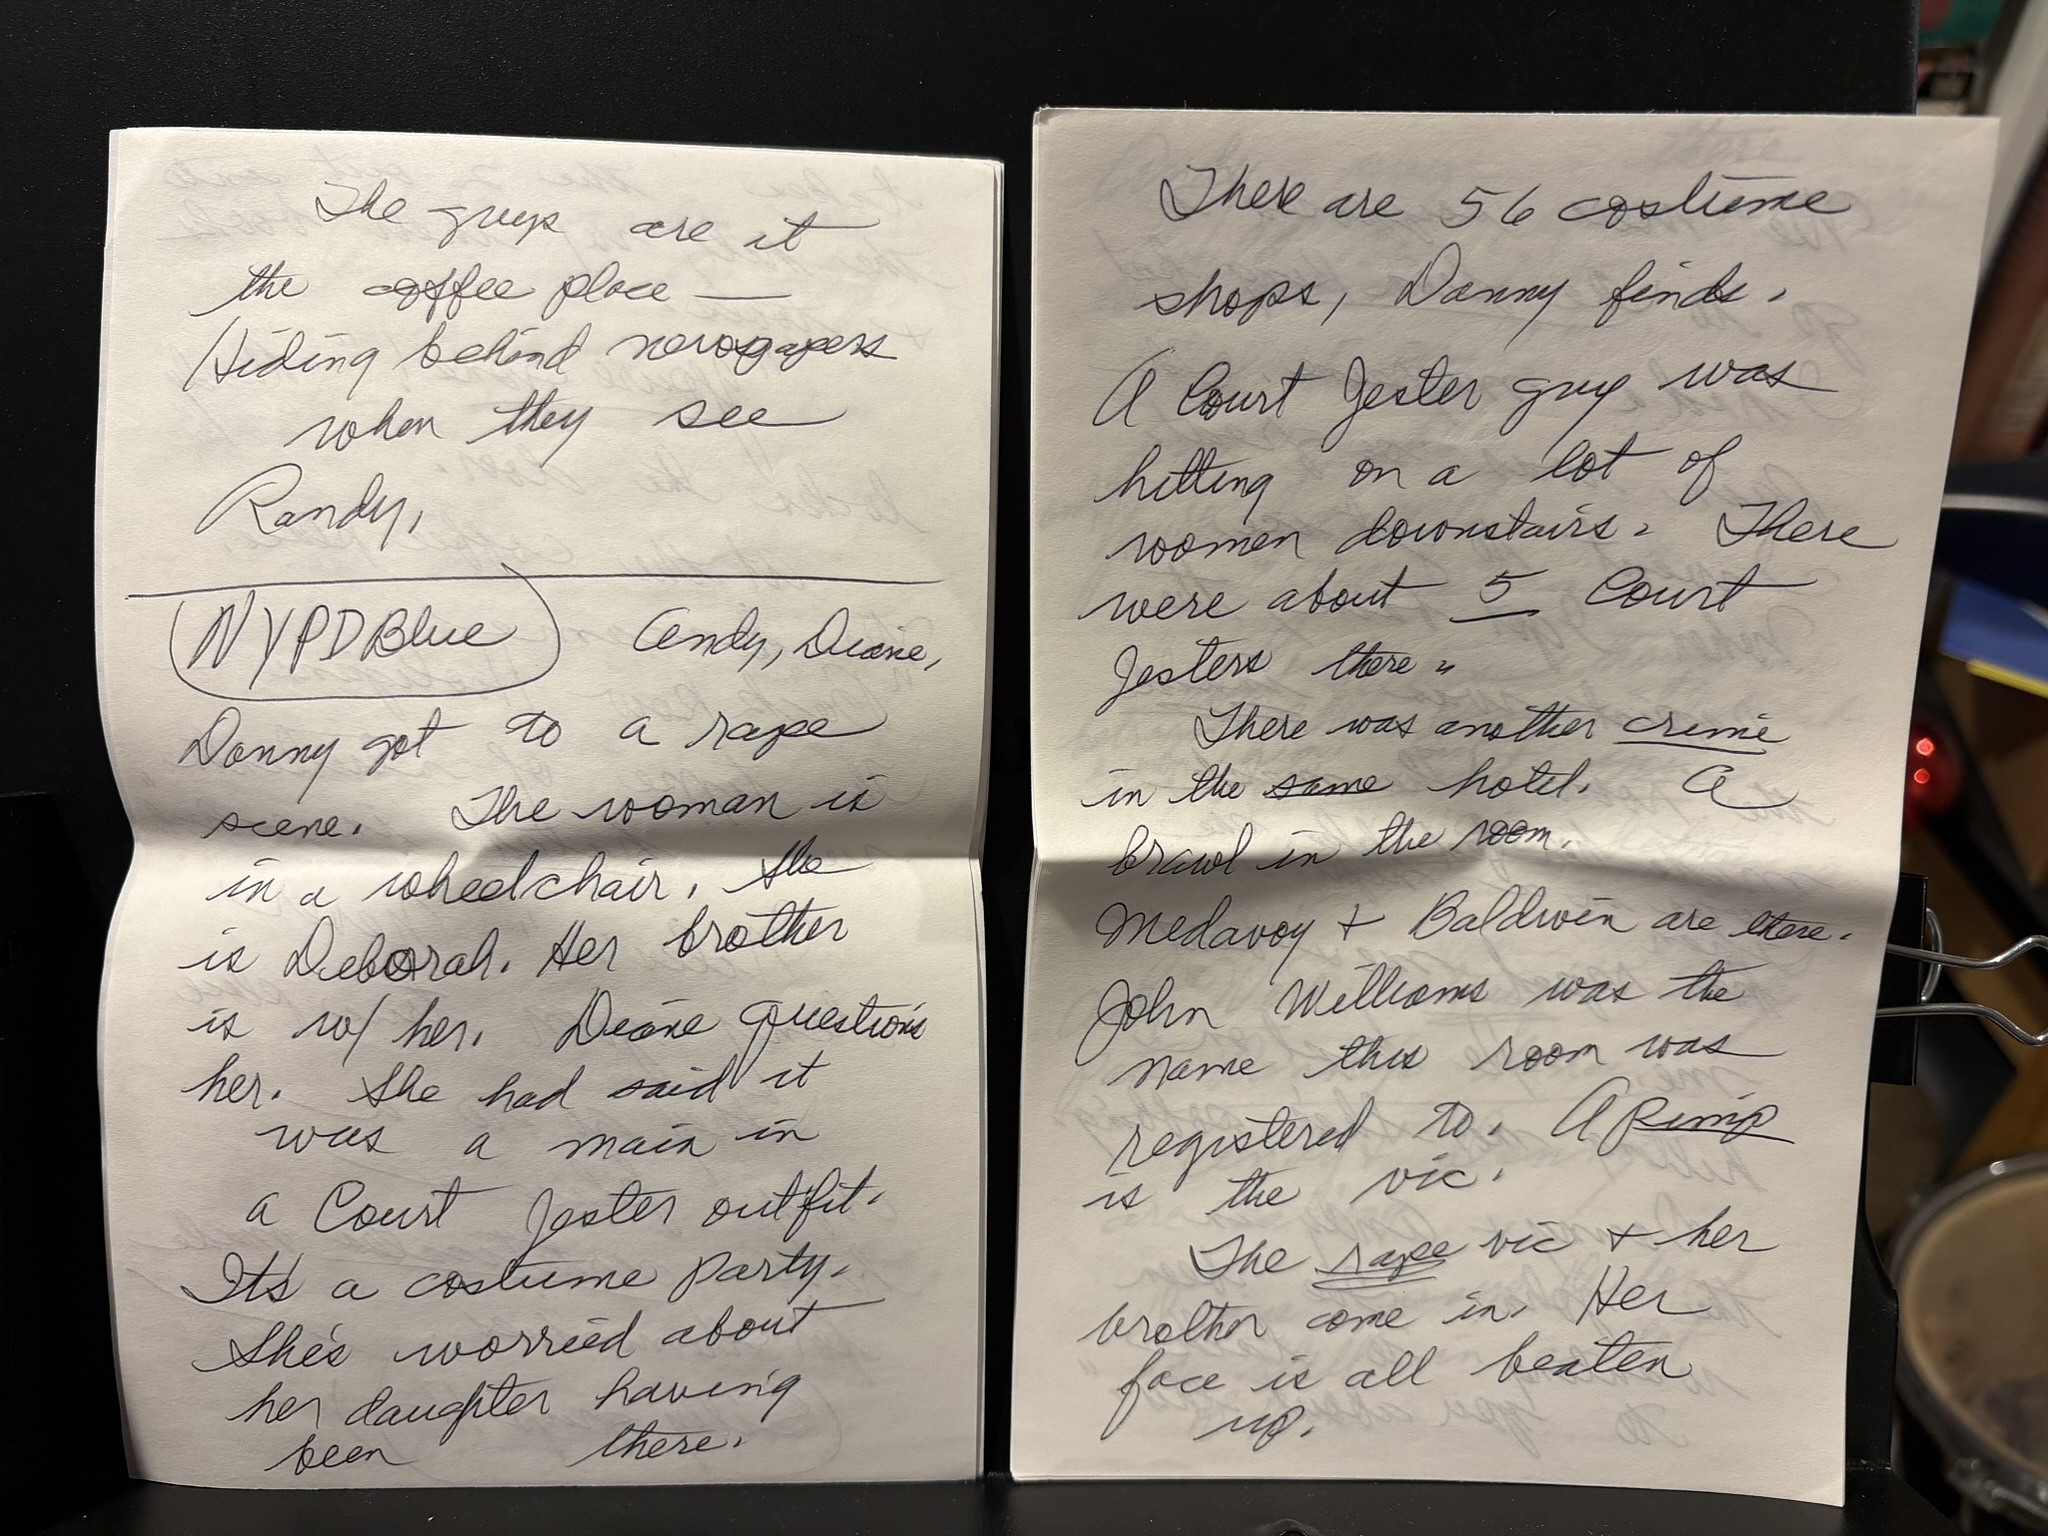 The guys are it
the coffee place —
Hiding behind newspapers
when they see
Randy.
NYPD Blue Andy, Diane,
Danny got to a rape
scene. The woman is
in a wheelchair. She
is Deborah. Her brother
is w/ her. Diane questions
her. She had said it
was a main in
a Court Jester outfit.
It's a costume party.
She's worried about
her daughter having
been there.
There are 56 costume
shops, Danny finds.
A Court Jester guy was
hitting on a lot of
women downstairs. There
were about 5 Court
Jesters there.
There was another crime
in the same hotel. A
brawl in the room.
Medavoy + Baldwin are there.
John Williams was the
name this room was
registered to. A Pimp
is the vic.
The rape vic + her
brother come in. Her
face is all beaten
up.